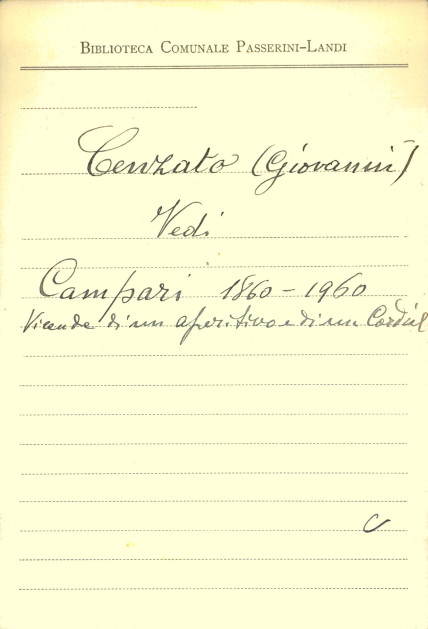 BIBLIOTECA COMUNALE PASSERINI-LANDI
Cenzato (Giovanni)
Vedi
Campari 1860 - 1960
Vicende di un aperitivo e di un Cordial
C